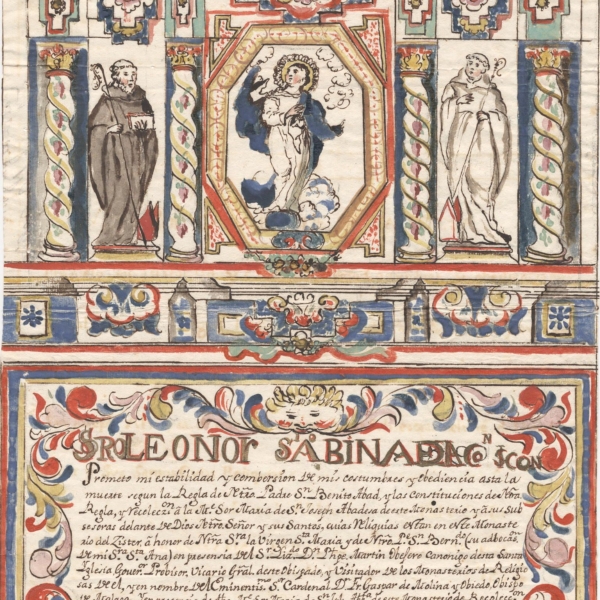 SRO LEONOR STA SABINA
Prometo mi estabilidad y combersion de mis costumbres y obediencia asta la
muerte segun la Regla de Ntro Padre Sn Benito Abad, y las constituciones de dha
Regla, y Recoleccion a la Me Sor Maria de Sn Joseph Abadesa de este Monasterio y a sus sub
sesoras delante de Dios Ntro Señor y sus Santos, cuias Reliquias estan en este Monaste
rio del Zister, a honor de Ntra Sra la Virgen Sta Maria y de Ntro Pe Sn Berndo (su adbocaon
de mi Sra Sta Ana) en presencia del Sr Dn Martin Canonigo desta Santa
Iglesia Gouer. Probisor, Vicario Gral. deste Obispado, y Visitador de los Monasterios de Religio
sas de el, y en nombre del Eminentismo Sr Cardenal D. Fr Gaspar de Molina y Obiedo, Obispo
de Malaga, y en presencia de Me Sor Maria de Sn Monasterio de Recoleccon